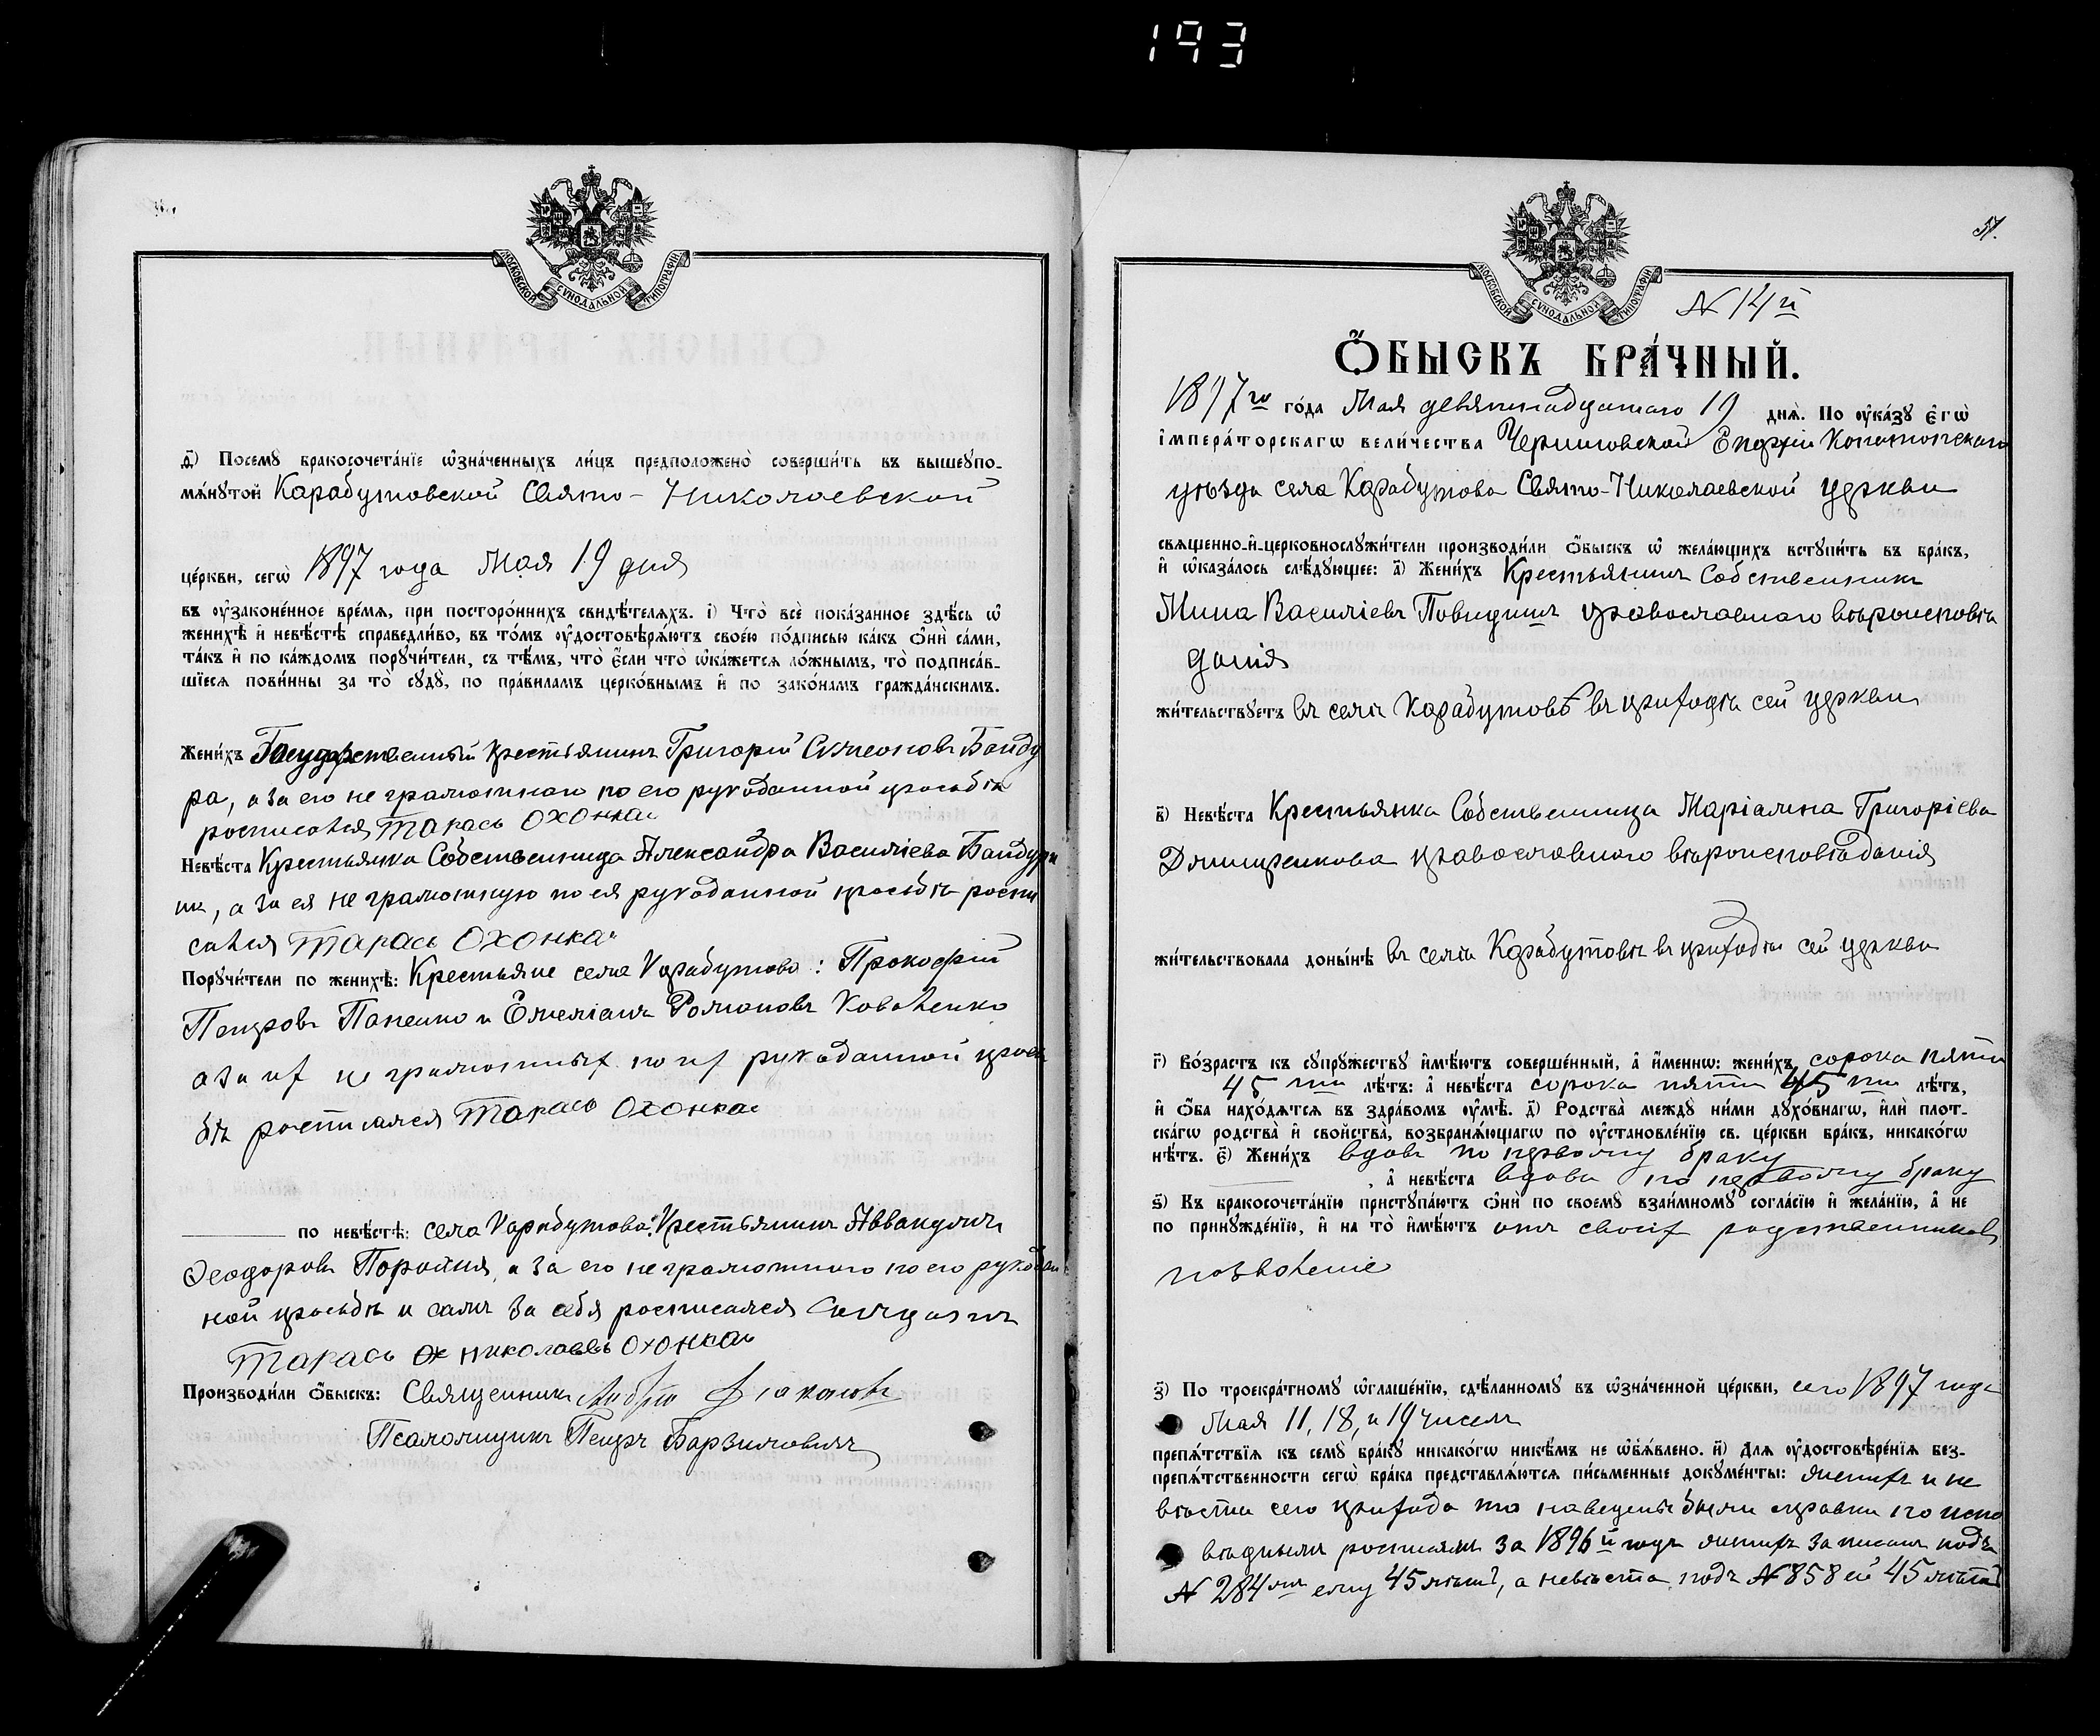 193
МОСКОВСКОЙ СѴНОДАЛЬНОЙ ТИПОГРАФІИ
д҃і) Посемꙋ бракосочетáнїе ѡ҆знáченныхъ ли́цъ предположенò соверши́ть въ вышеꙋпо-
мѧ́нꙋтой Карабутовской Свято-Николаевской
це́ркви, сегѡ̀ 1897 года Мая 19 дня
въ ᲂу҆законе́нное вре́мѧ, при посторо́ннихъ свидѣ́телѧхъ. і) Что̀ всѐ пока́занное здѣ́сь ѡ҆
женихѣ̀ и҆ невѣ́стѣ справедли́во, въ то́мъ ᲂу҆достовѣрѧ́ютъ свое́ю по́дписью ка́къ ѻ҆нѝ са́ми,
та́къ и҆ по ка́ждомъ порꙋчи́тели, съ тѣ́мъ, что̀ є҆́сли что̀ ѡ҆ка́жетсѧ ло́жнымъ, то̀ подписа́в-
шїесѧ пови́нны за то̀ сꙋдꙋ̀, по пра́виламъ церко́внымъ и҆ по зако́намъ гражда́нскимъ.
Жени́хъ Государственный крестьянинъ Григорій Симеоновъ Банду
ра, а за его не грамотнаго по его рукоданной просьбѣ
росписався Тарасъ Охонка
Невѣ́ста Крестьянка Собственница Александра Василіева Бандури
на, а за ея не грамотную по ея рукоданной просьбѣ роспи
сався Тарасъ Охонка
Порꙋчи́тели по женихѣ̀: Крестьяне села Карабутова: Прокофій
Петровъ Папенко и Емеліанъ Романовъ Коваленко
а за их не грамотных по их рукоданной прось
бѣ росписался Тарасъ Охонка
по невѣ́стѣ: села Карабутова: Крестьянинъ Аввакумъ
Феодоровъ Порохня, а за его не грамотного по его рукодан
ной просьбѣ и самъ за себя росписался
Тарасъ Ох николаевъ Охонка
Производи́ли ѻ҆́быскъ: Священникъ Діаконовъ
Псаломщикъ Петръ Барзиловичъ
МОСКОВСКОЙ СѴНОДАЛЬНОЙ ТИПОГРАФІИ
51.
N 14й
Ѻ҆́БЫСКЪ БРА́ЧНЫЙ.
1897го го́да Мая девятнадцатаго 19 днѧ̀. По ᲂу҆ка́зꙋ є҆гѡ̀
і҆мпера́торскагѡ вели́чества Черниговской Епархіи Конотопскаго
уѣзда села Карабутова Свято-Николаевской церкви
свѧщенно-и҆-церковнослꙋжи́тели производи́ли ѻ҆́быскъ ѡ҆ жела́ющихъ встꙋпи́ть въ бра́къ,
и҆ ѡ҆каза́лось слѣ́дꙋющее: а҃) Жени́хъ Крестьянинъ Собственникъ
Мина Василіевъ Повидишъ православнаго вѣроисповѣ
данія
жи́тельствꙋетъ въ селѣ Карабутовѣ въ приходѣ сей церкви
в҃) Невѣ́ста Крестьянка Собственница Маріамна Григоріева
Дмищенкова православного вѣроисповѣданія
жи́тельствовала доны́нѣ въ селѣ Карабутовѣ въ приходѣ сей церкви
г҃) Во́зрастъ къ сꙋпрꙋжествꙋ и҆мѣ́ютъ соверше́нный, а҆ и҆́меннѡ: жени́хъ сорока пяти
45 ти лѣ́тъ: а҆ невѣ́ста сорока пяти 45 ти лѣ́тъ,
и҆ ѻ҆́ба нахо́дѧтсѧ въ здра́вомъ ᲂу҆мѣ̀. д҃) Родства̀ междꙋ̀ ни́ми дꙋхо́внагѡ, и҆лѝ плот-
ска́гѡ родства̀ и҆ сво́йства̀, возбранѧ́ющагѡ по ᲂу҆становле́нїю св. це́ркви бра́къ, никако́гѡ
нѣ́тъ. є҃) Жени́хъ вдовъ по первому браку
, а҆ невѣ́ста вдова по первому браку
ѕ҃) Къ бракосочета́нїю пристꙋпа́ютъ ѻ҆нѝ по своемꙋ̀ взаи́мномꙋ согла́сїю и҆ жела́нїю, а҆ не
по принꙋжде́нїю, и҆ на то̀ и҆мѣ́ютъ отъ своих родственниковъ
позволеніе
з҃) По троекра́тномꙋ ѡ҆глаше́нїю, сдѣ́ланномꙋ въ ѡ҆зна́ченной це́ркви, сего 1897 года
Мая 11, 18, и 19 чиселъ
препѧ́тствїѧ къ семꙋ̀ бра́кꙋ никако́гѡ никѣ́мъ не ѡ҆б̾ѧ́влено. и҃) Для ᲂу҆достовѣре́нїѧ без-
препѧ́тственности сегѡ̀ бра́ка представлѧ́ютсѧ пи́сьменные докꙋме́нты: женихъ и не
вѣста сего прихода то наведены были справки по испо
вѣднымъ росписямъ за 1896й годъ женихъ записанъ подъ
N 284мъ ему 45 лѣтъ, а невѣста подъ N 858 ей 45 лѣтъ